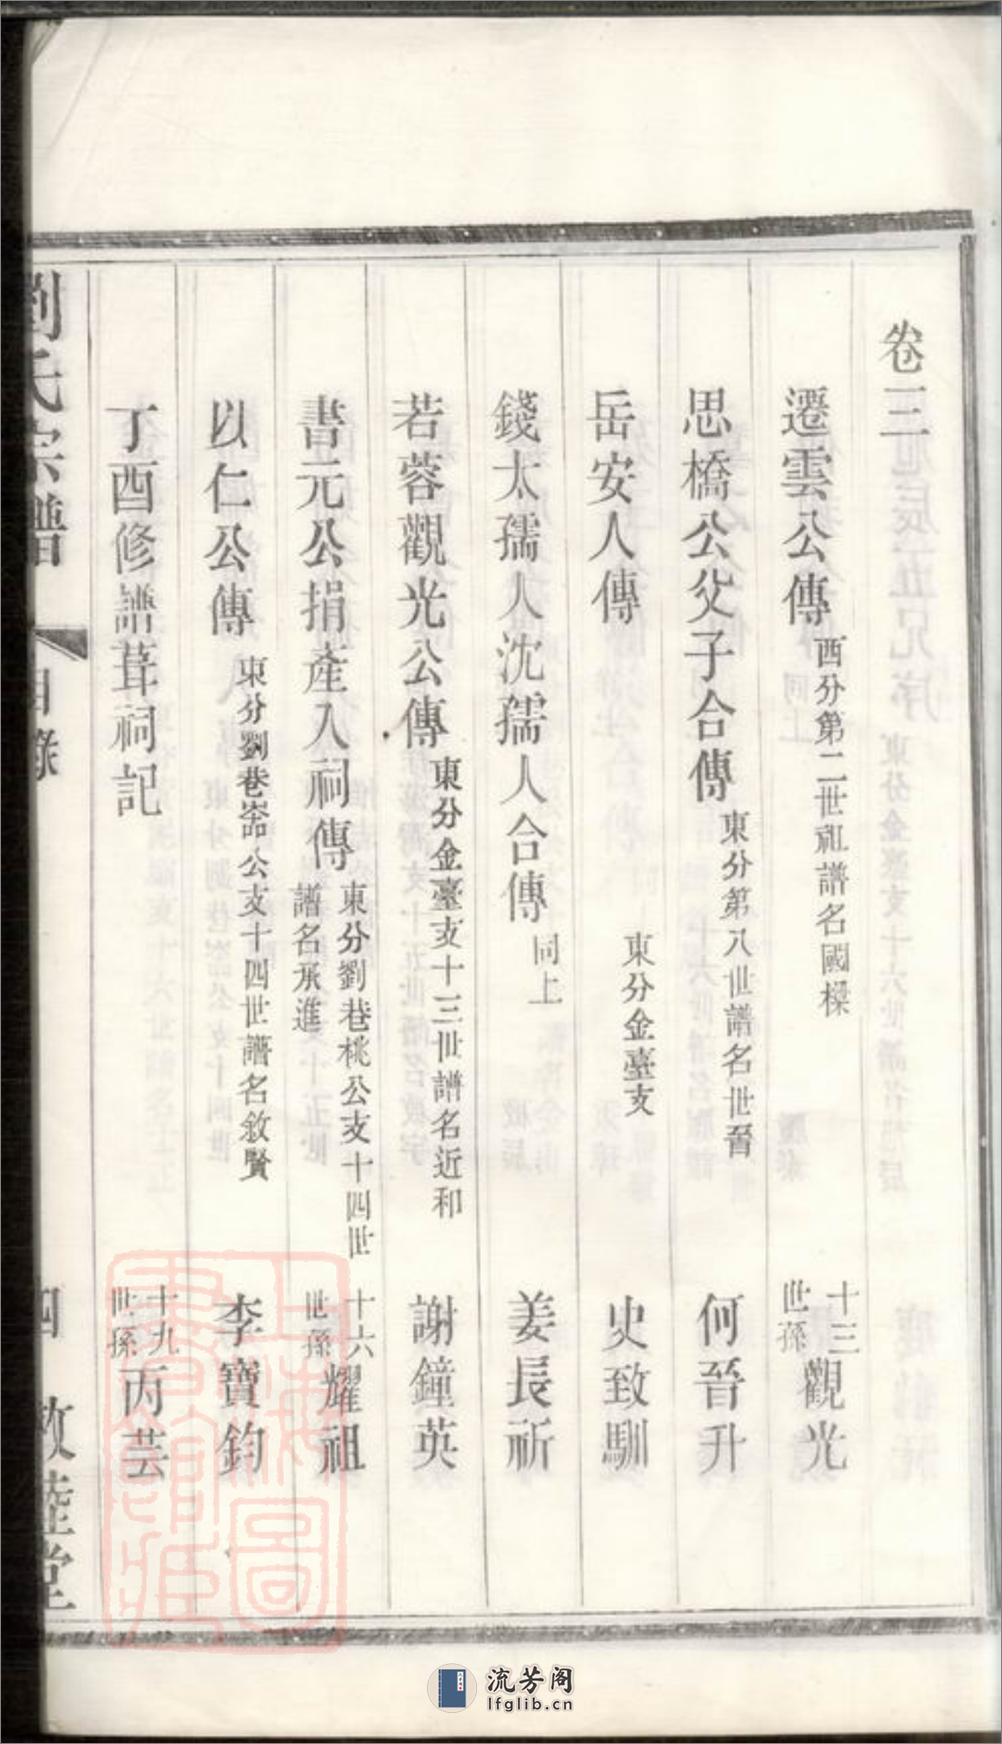 卷三
遷雲公傳 西分第二世祖譜名國樑 十三世孫 觀光
思橋公父子合傳 東分第八世譜名世晉 何晉升
岳安人傳 東分金臺支 史致馴
錢太孺人沈孺人合傳 同上 姜長祈
若蓉觀光公傳 東分金臺支十三世譜名近和 謝鐘英
書元公捐產入祠傳 東分劉巷桃公支十四世譜名承進 十六世孫 耀祖
以仁公傳 東分劉巷嵞公支十四世譜名敘賢 李寶鈞
丁酉修譜葺祠記 十九世孫 丙芸
劉氏宗譜 目錄 四 敦睦堂
上海圖書館藏
流芳阁
lfglib.cn